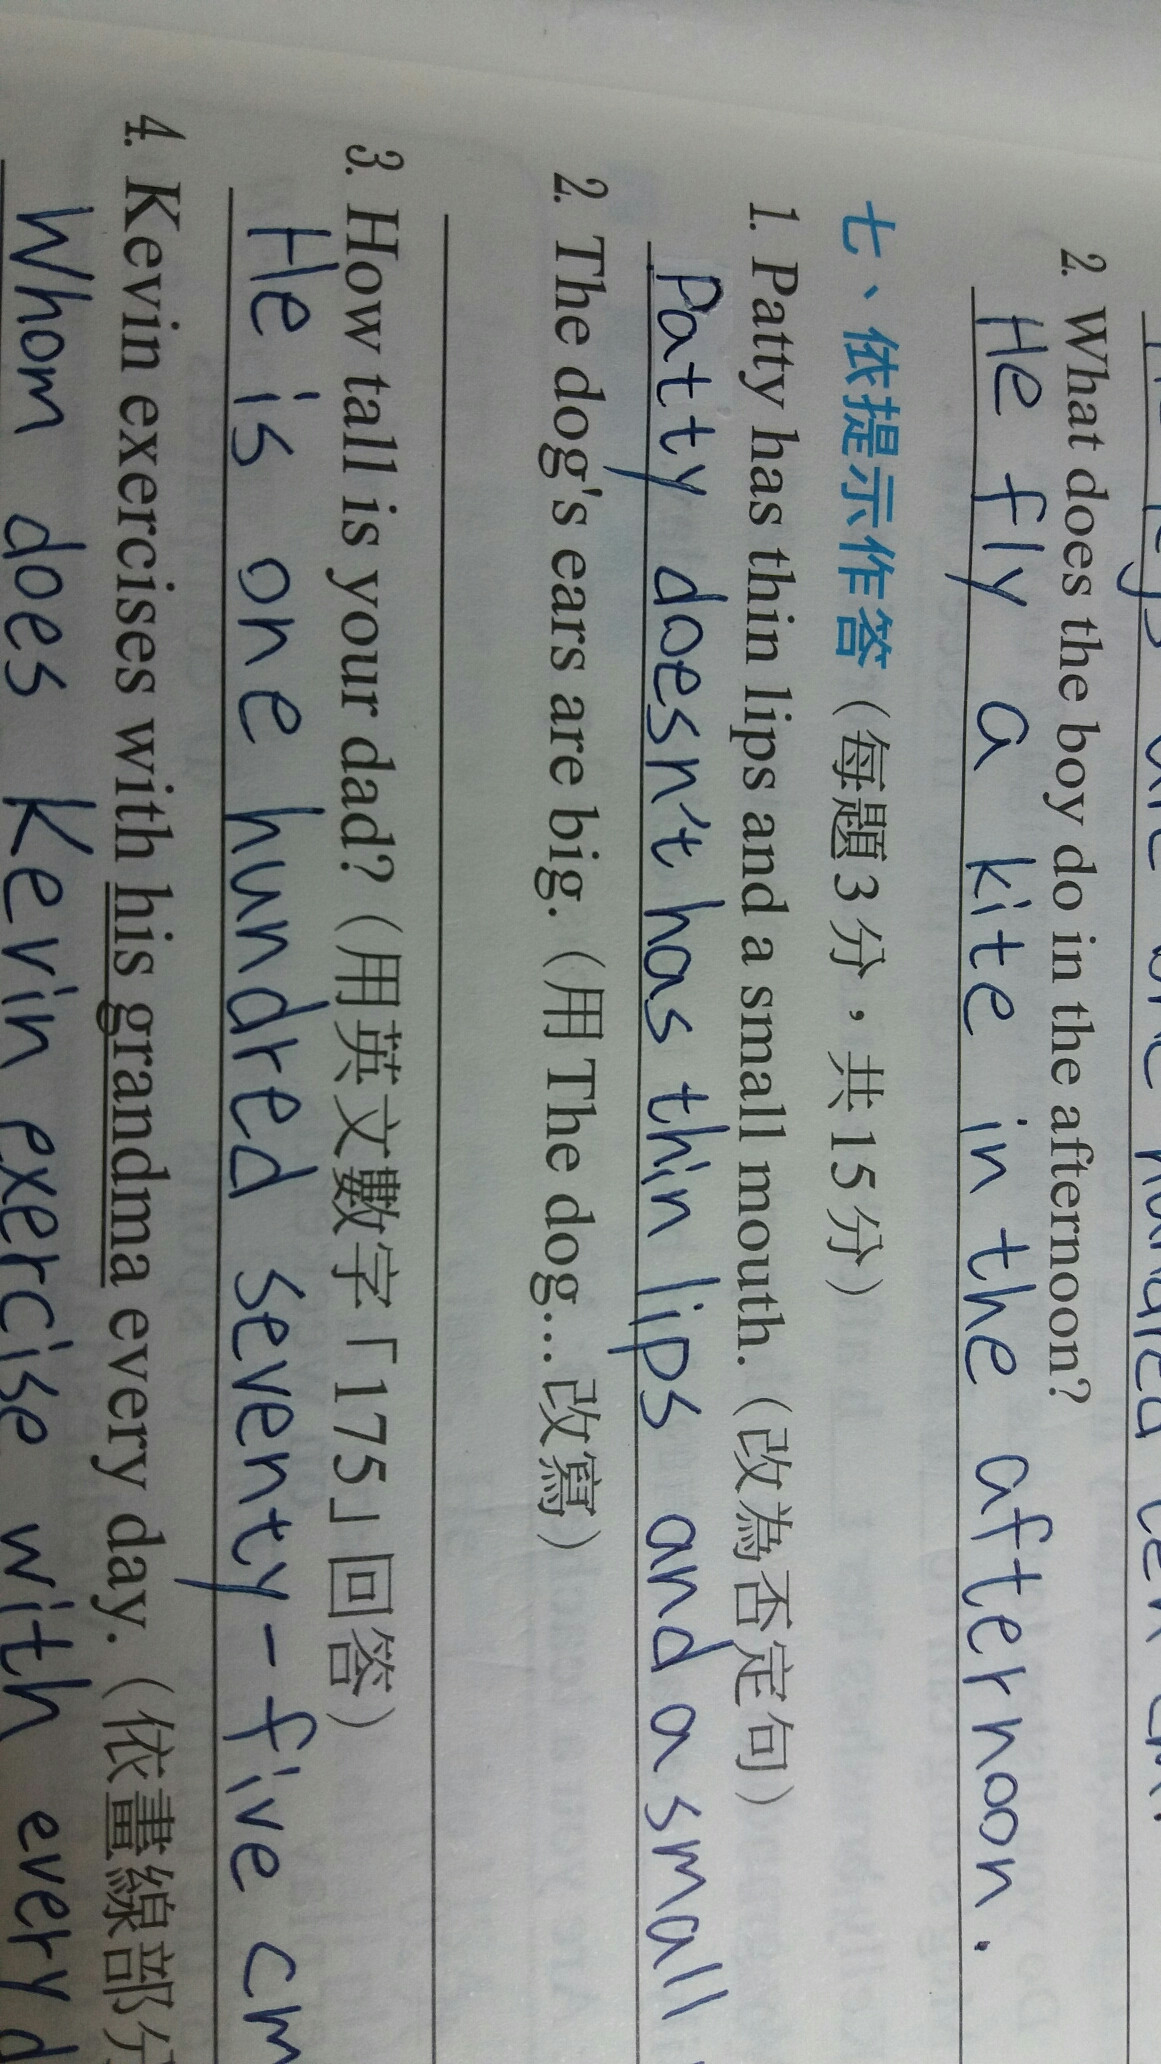 2. What does the boy do in the afternoon?
He fly a kite in the afternoon.
七、依提示作答（每題3分，共15分）
1. Patty has thin lips and a small mouth.（改為否定句）
Patty doesn't has thin lips and a small
2. The dog's ears are big.（用 The dog...改寫）
3. How tall is your dad?（用英文數字「175」回答）
He is one hundred seventy-five cm
4. Kevin exercises with his grandma every day.（依畫線部分
Whom does Kevin exercise with every d